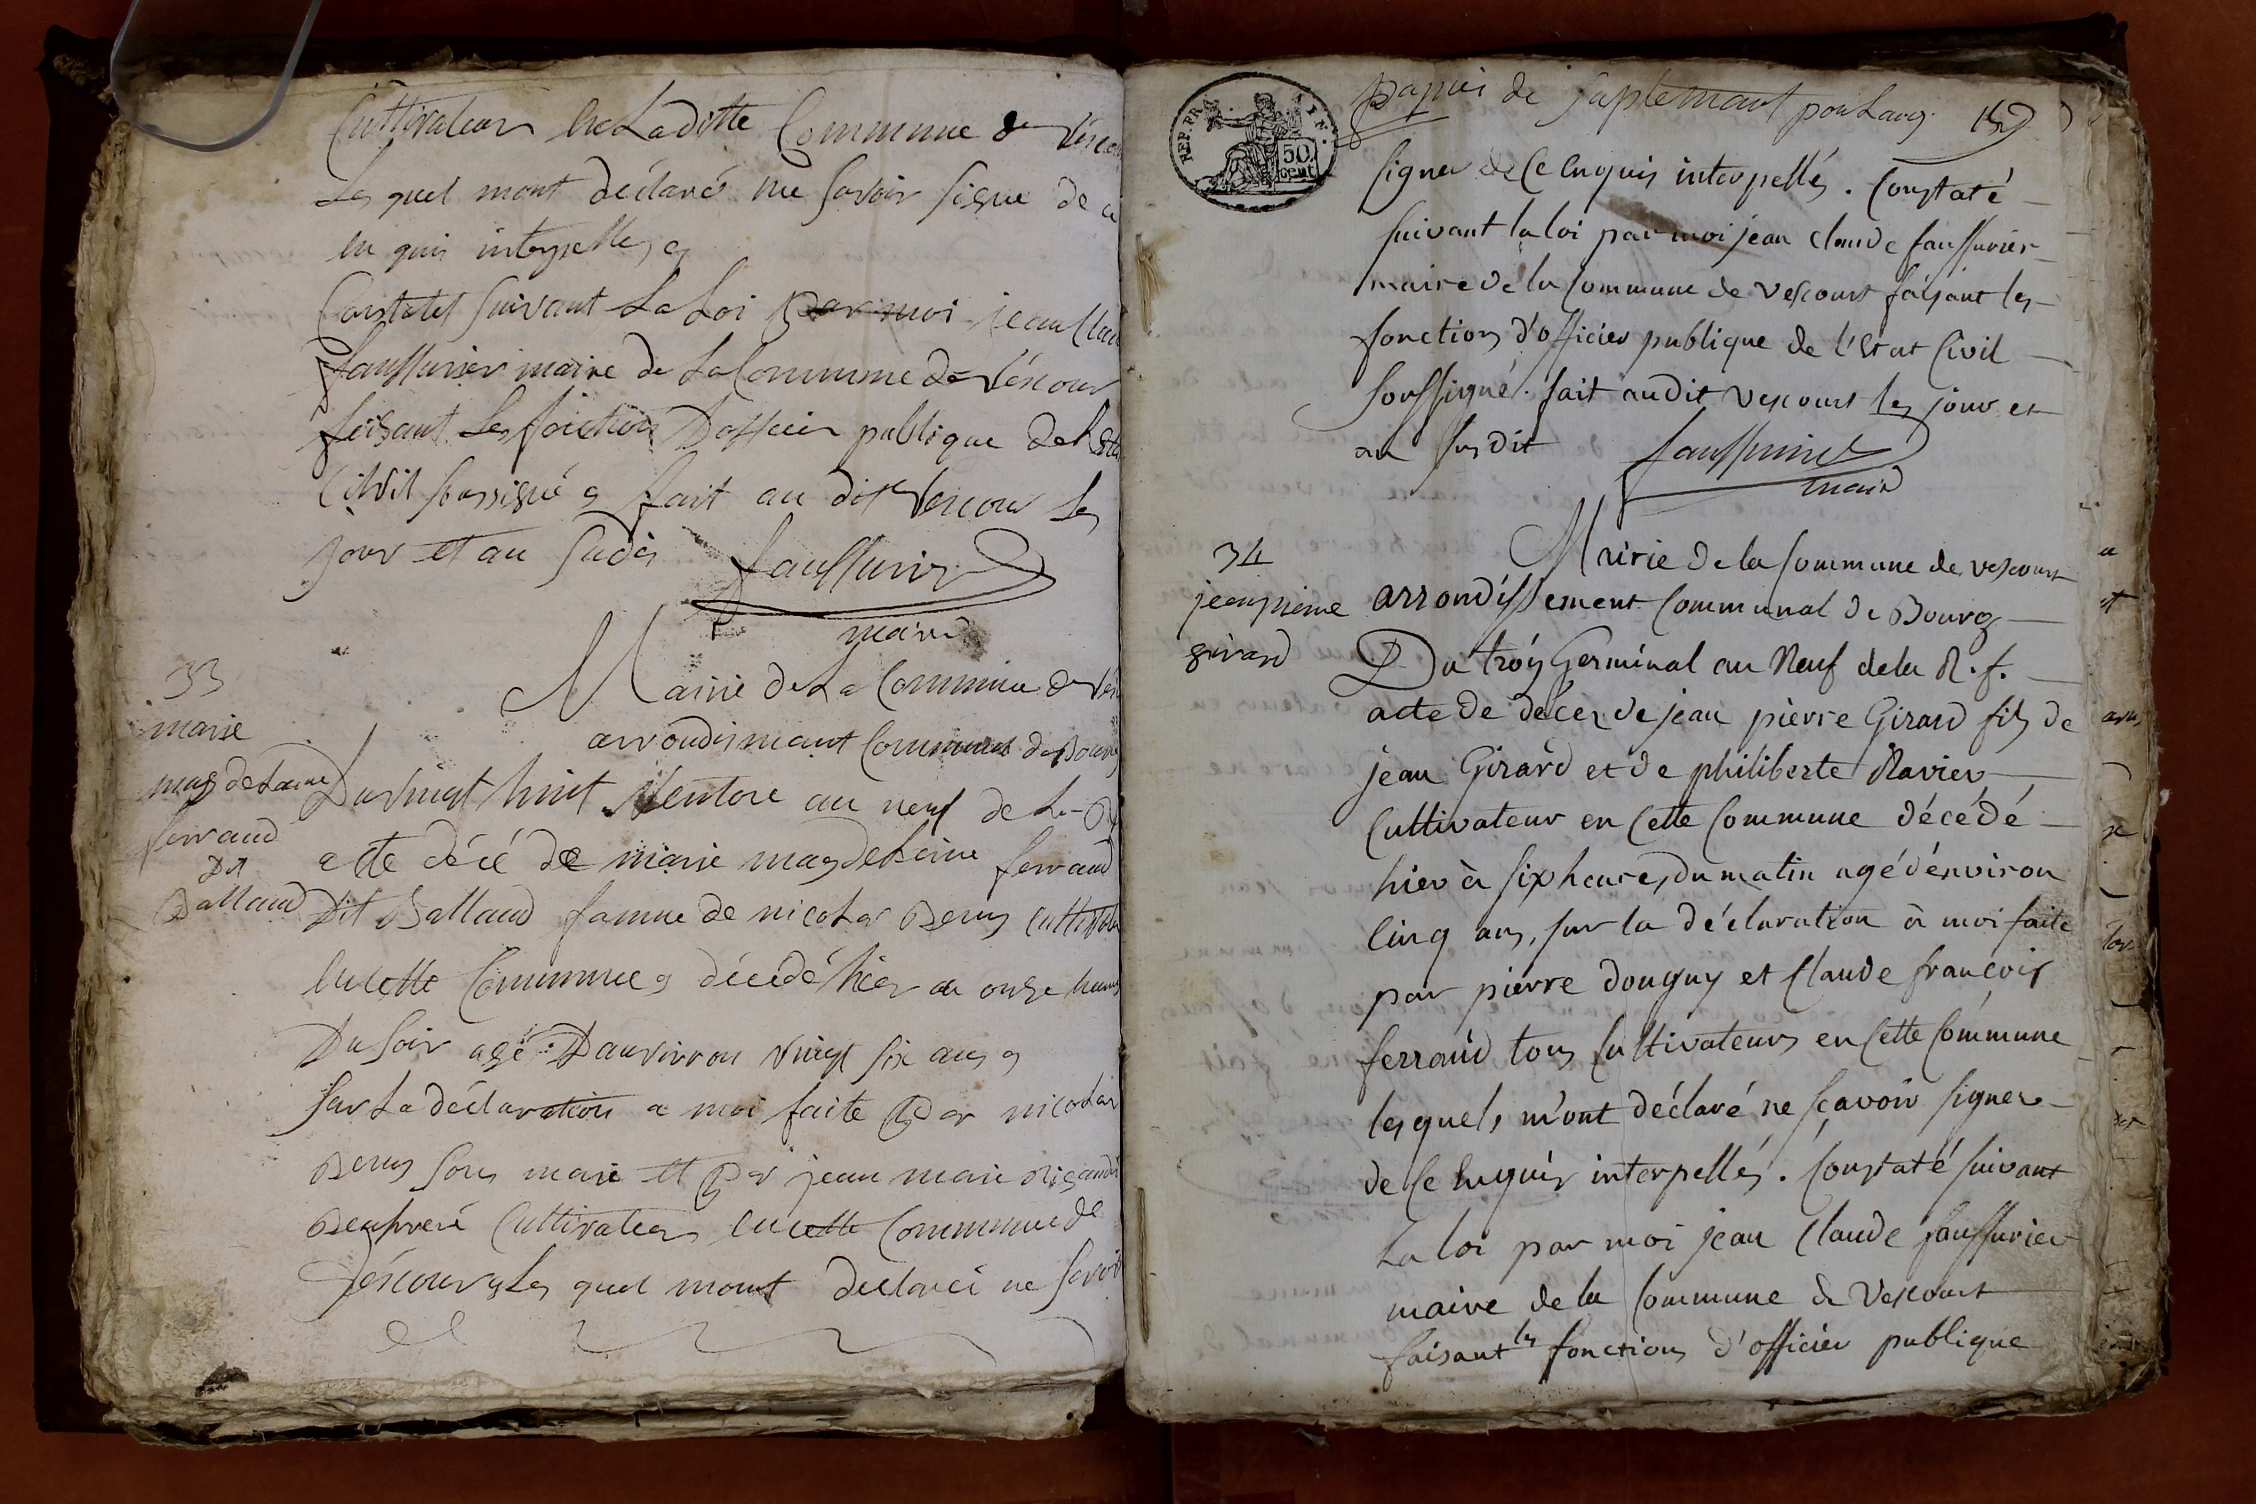 Cultivateur
de Laditte Commune de
Les quel mont déclaré ne Savoir Signe de ce
en quis interpelles
Constatet Suivant La Loi par moi jean Clau
faussurier maire de La Commune de
faisant Les fonction Dofficier publique de
Civil fait au dit Les
jour et an Sudis fausurier
maire
33
marie
magdeLaine
ferraud
Dit
Ballaud
Mairie de La Commune de
arrondismant Communal de Bourg
Du vingt huit Ventose an neuf de La R
acte décé de marie magdeLeine ferraud
Dit Ballaud famme de nicolas
en cette Commune décédé hier a onze heures
Du Soir agé Danvirron vingt Six ans
Sur La déclaration a moi faite par nicolas
Son mari et par jean marie
Cultivateur en cette Commune de
Les quel mont declaré ne Savoir
REP. FRA.
50
cent
papier de suplemant pour Lan 9.
Signer de Ce enquis interpellés. Constaté
Suivant la loi par moi jean claude faussurier
maire de la Commune de Vescours faisant les
fonctions d'officier publique de l'Etat Civil
Soussigné. fait audit Vescours les jour et
an Susdit faussurier
maire
34
jean pierre
girard
Mairie de la Commune de Vescours
arrondissement Communal de Bourg
Du trois Germinal an Neuf de la R. f.
acte de décès de jean pierre Girard fils de
jean Girard et de philiberte Ravier
Cultivateur en Cette Commune décédé
hier à Six heures du matin agé d'environ
Cinq ans, sur la déclaration à moi faite
par pierre douguy et Claude françois
ferraud tous Cultivateurs en Cette Commune
lesquels m'ont déclaré ne Sçavoir Signer
de Ce Enquis interpellés. Constaté Suivant
La loi par moi jean Claude faussurier
maire de la Commune de Vescours
faisant les fonctions d'officier publique